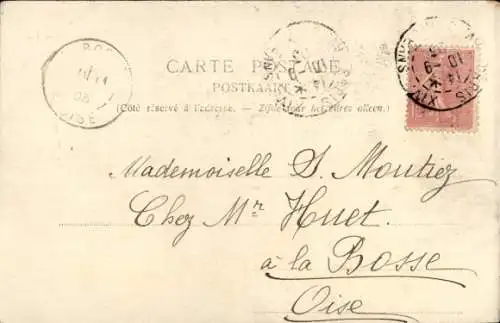 CARTE POSTALE
POSTKAART
(Côté réservé à l'adresse. — Zijde voor het adres alleen.)
Mademoiselle S. Moutiez
Chez Mr Huet
à la Bosse
Oise
OISE